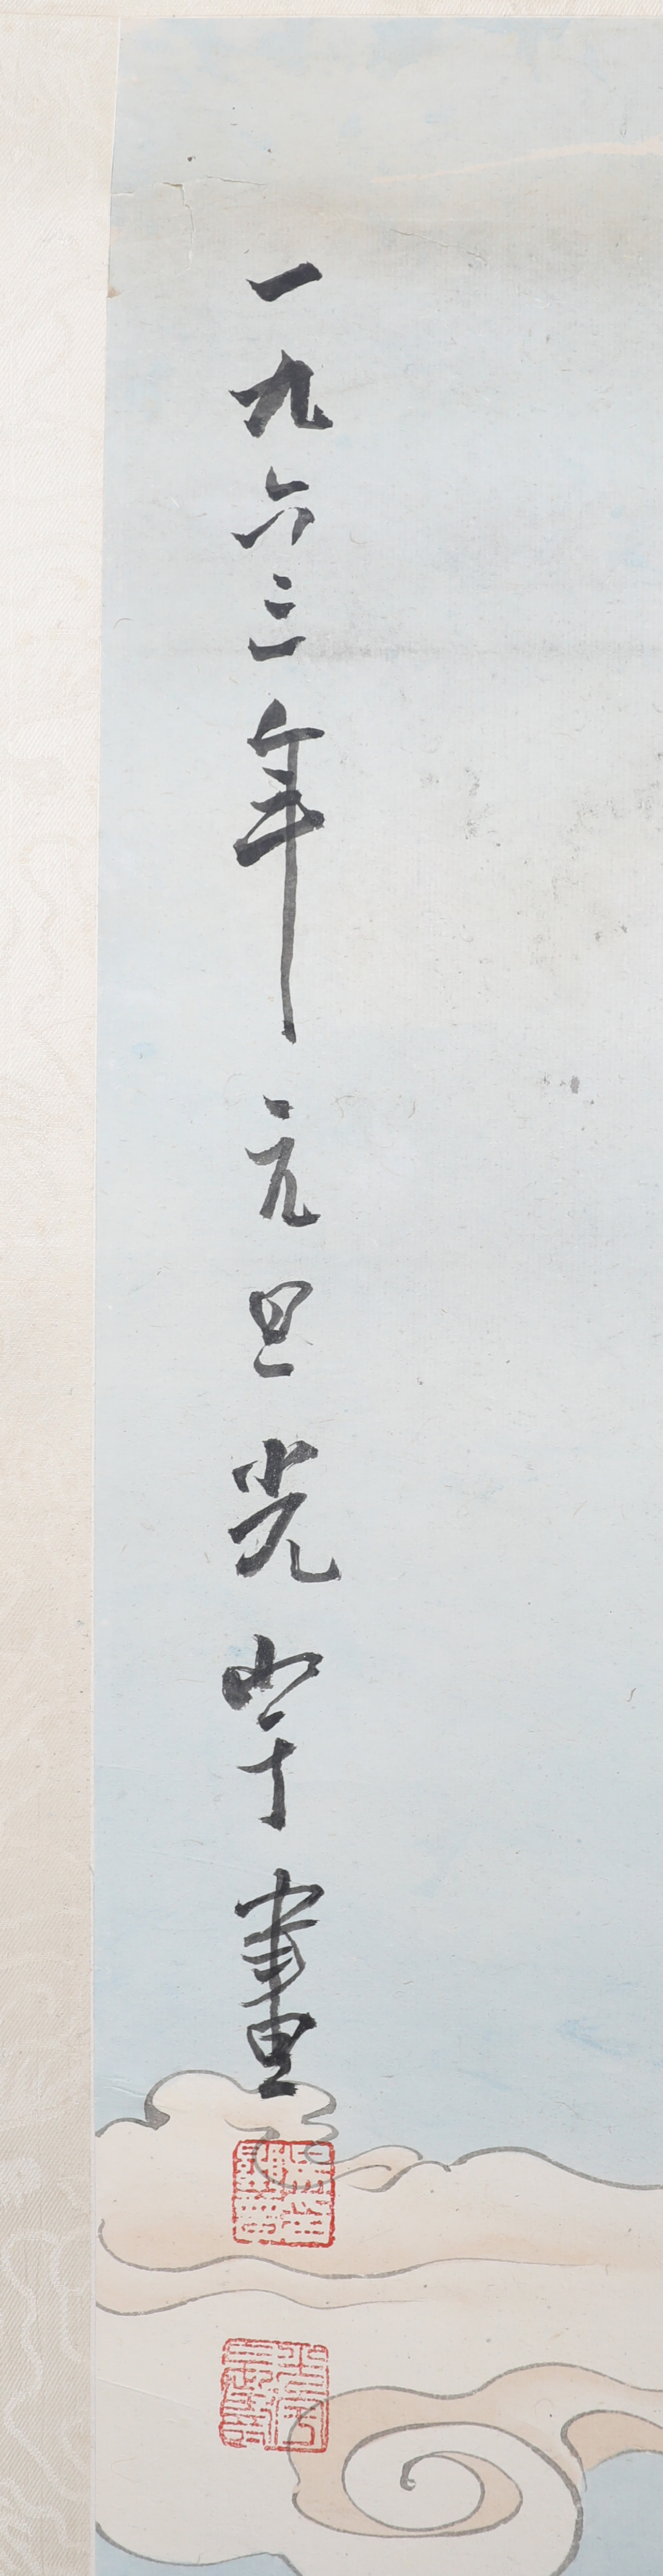 一九六三年元旦光宇畫